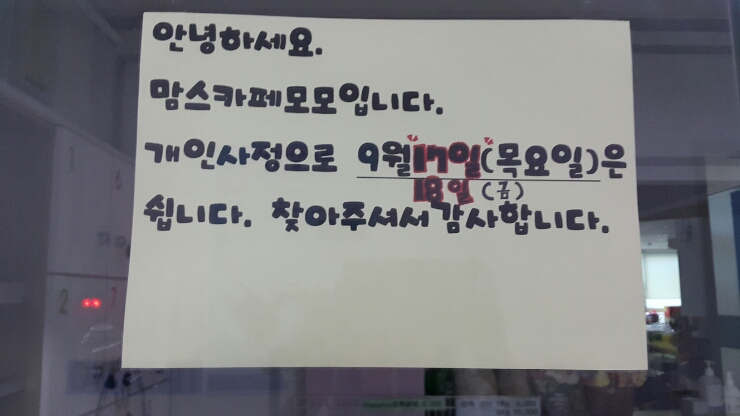 안녕하세요.
맘스카페모모입니다.
개인사정으로 9월"17일"(목요일)은
18일(금)
쉽니다. 찾아주셔서감사합니다.
1
6
2
7